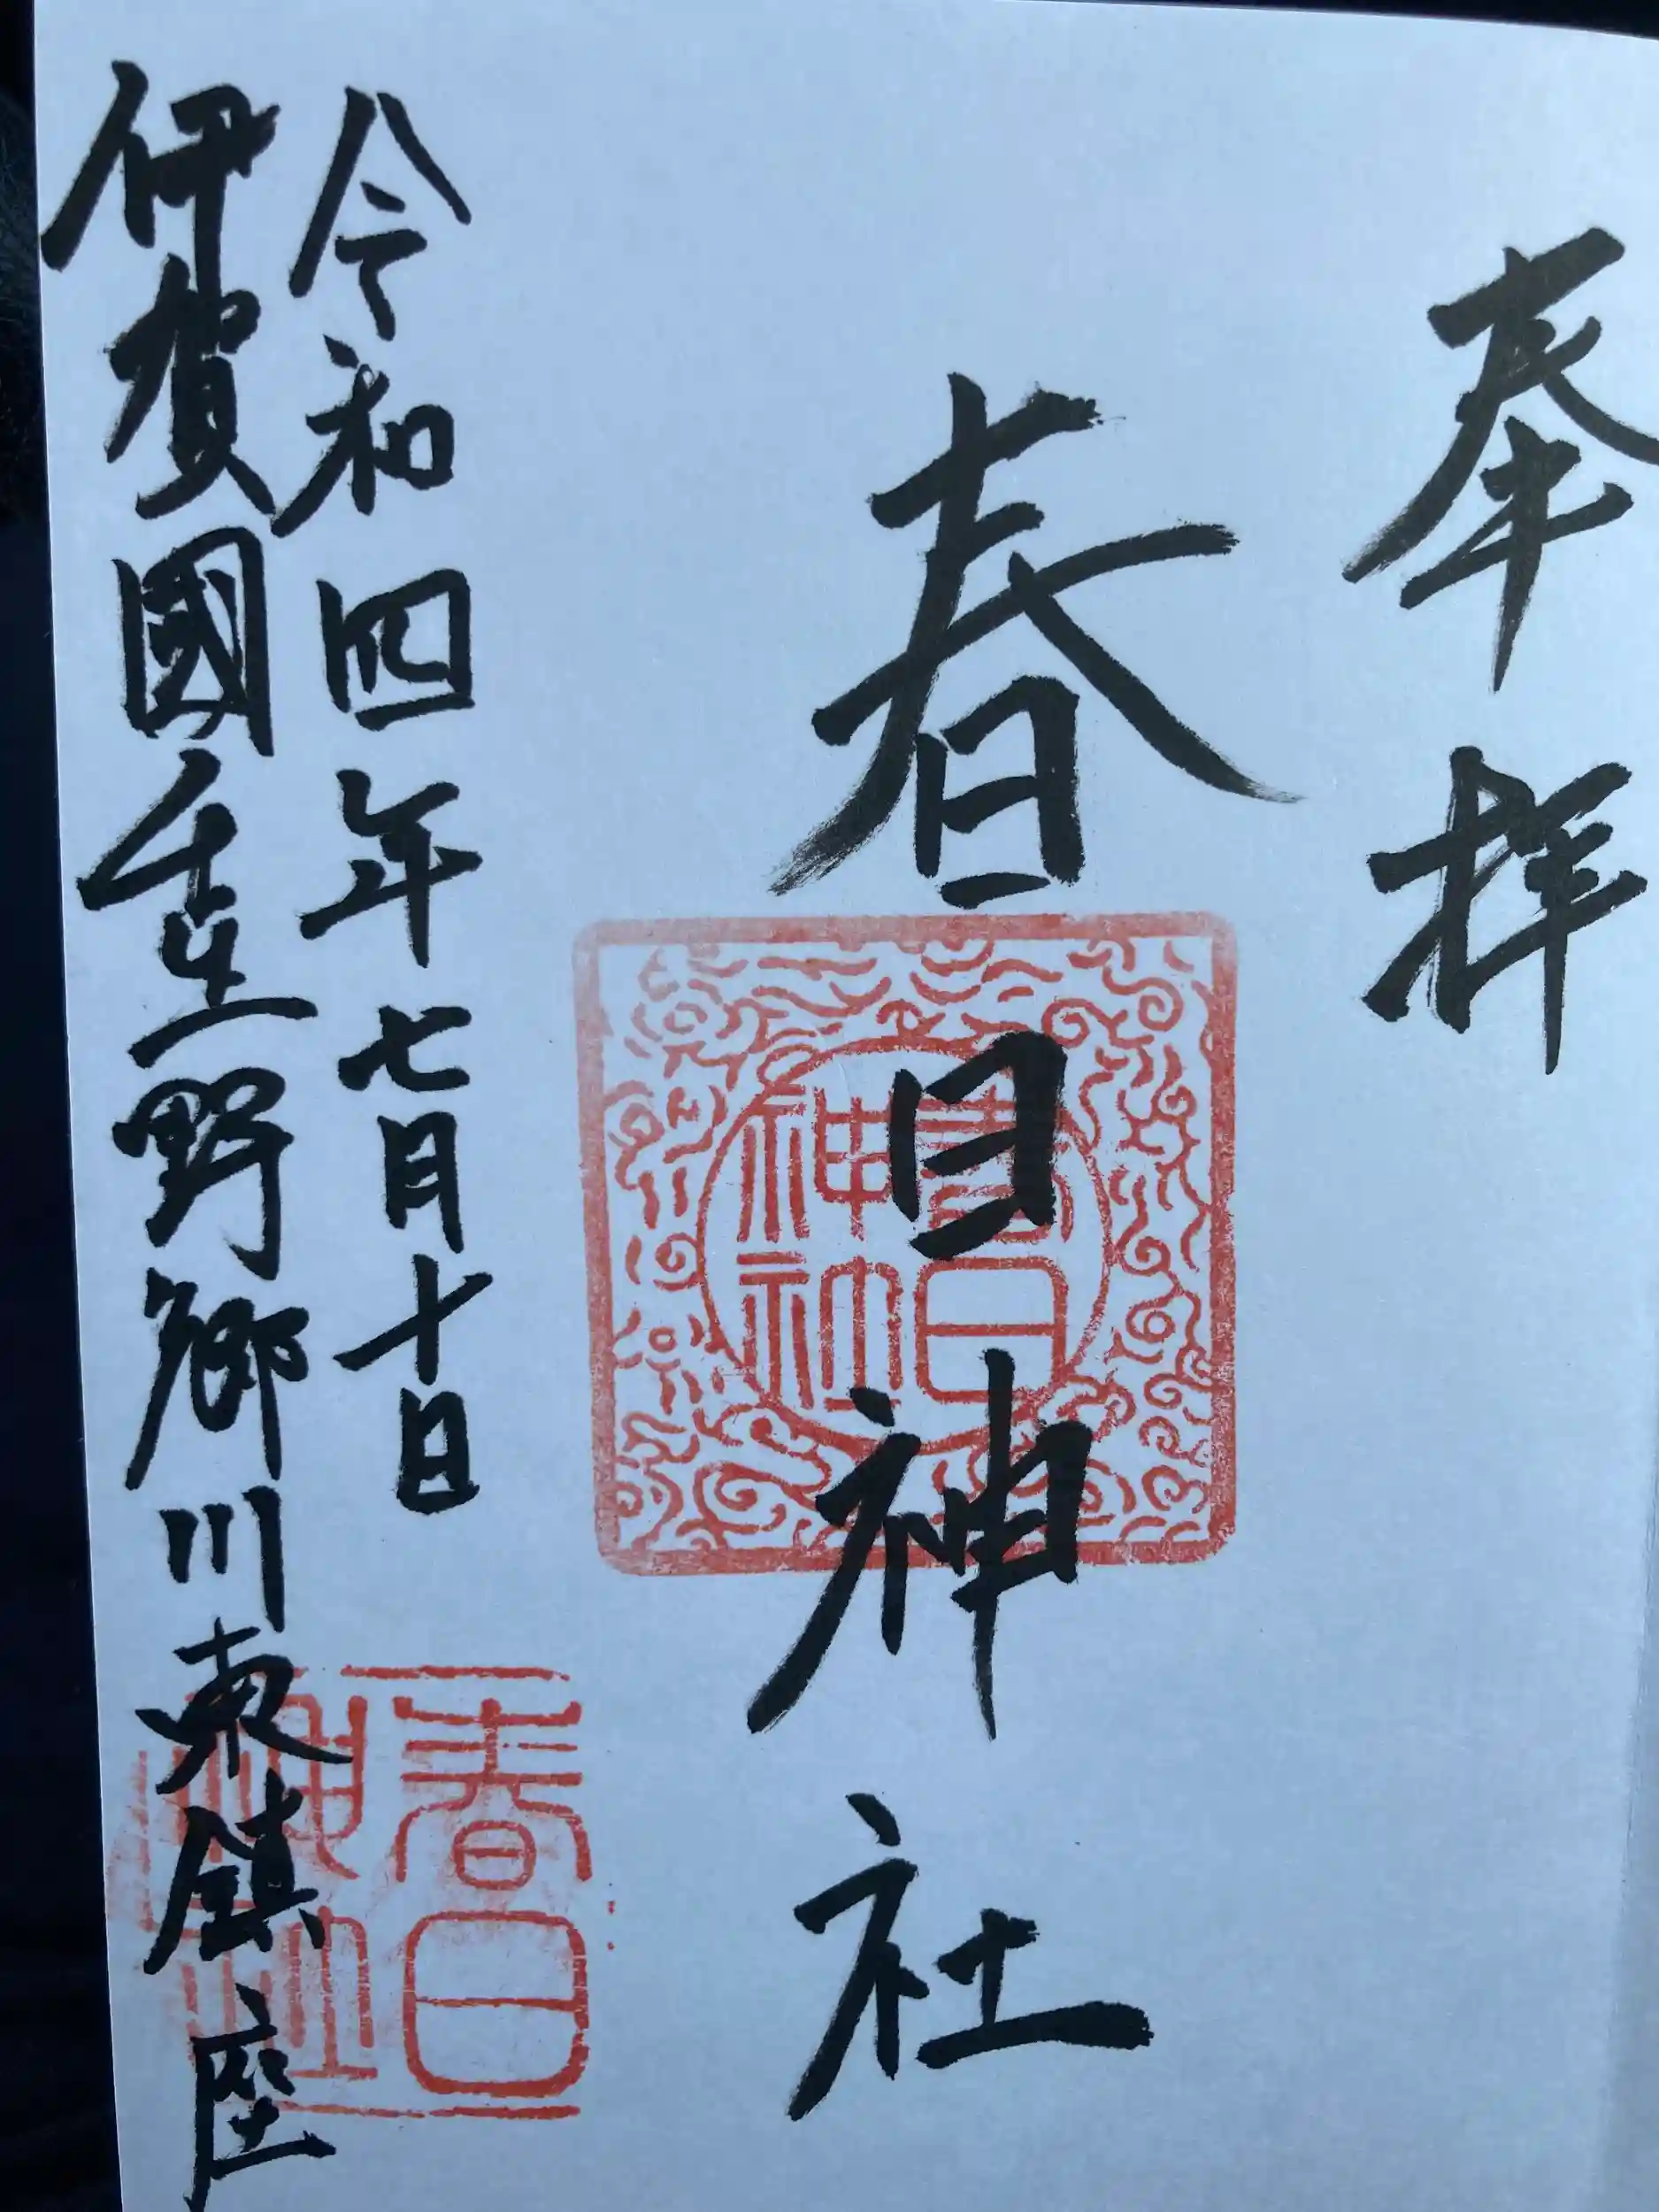 奉拝
春日神社
春日神社
令和四年七月十日
伊賀國壬生野郷川東鎮座
春日神社